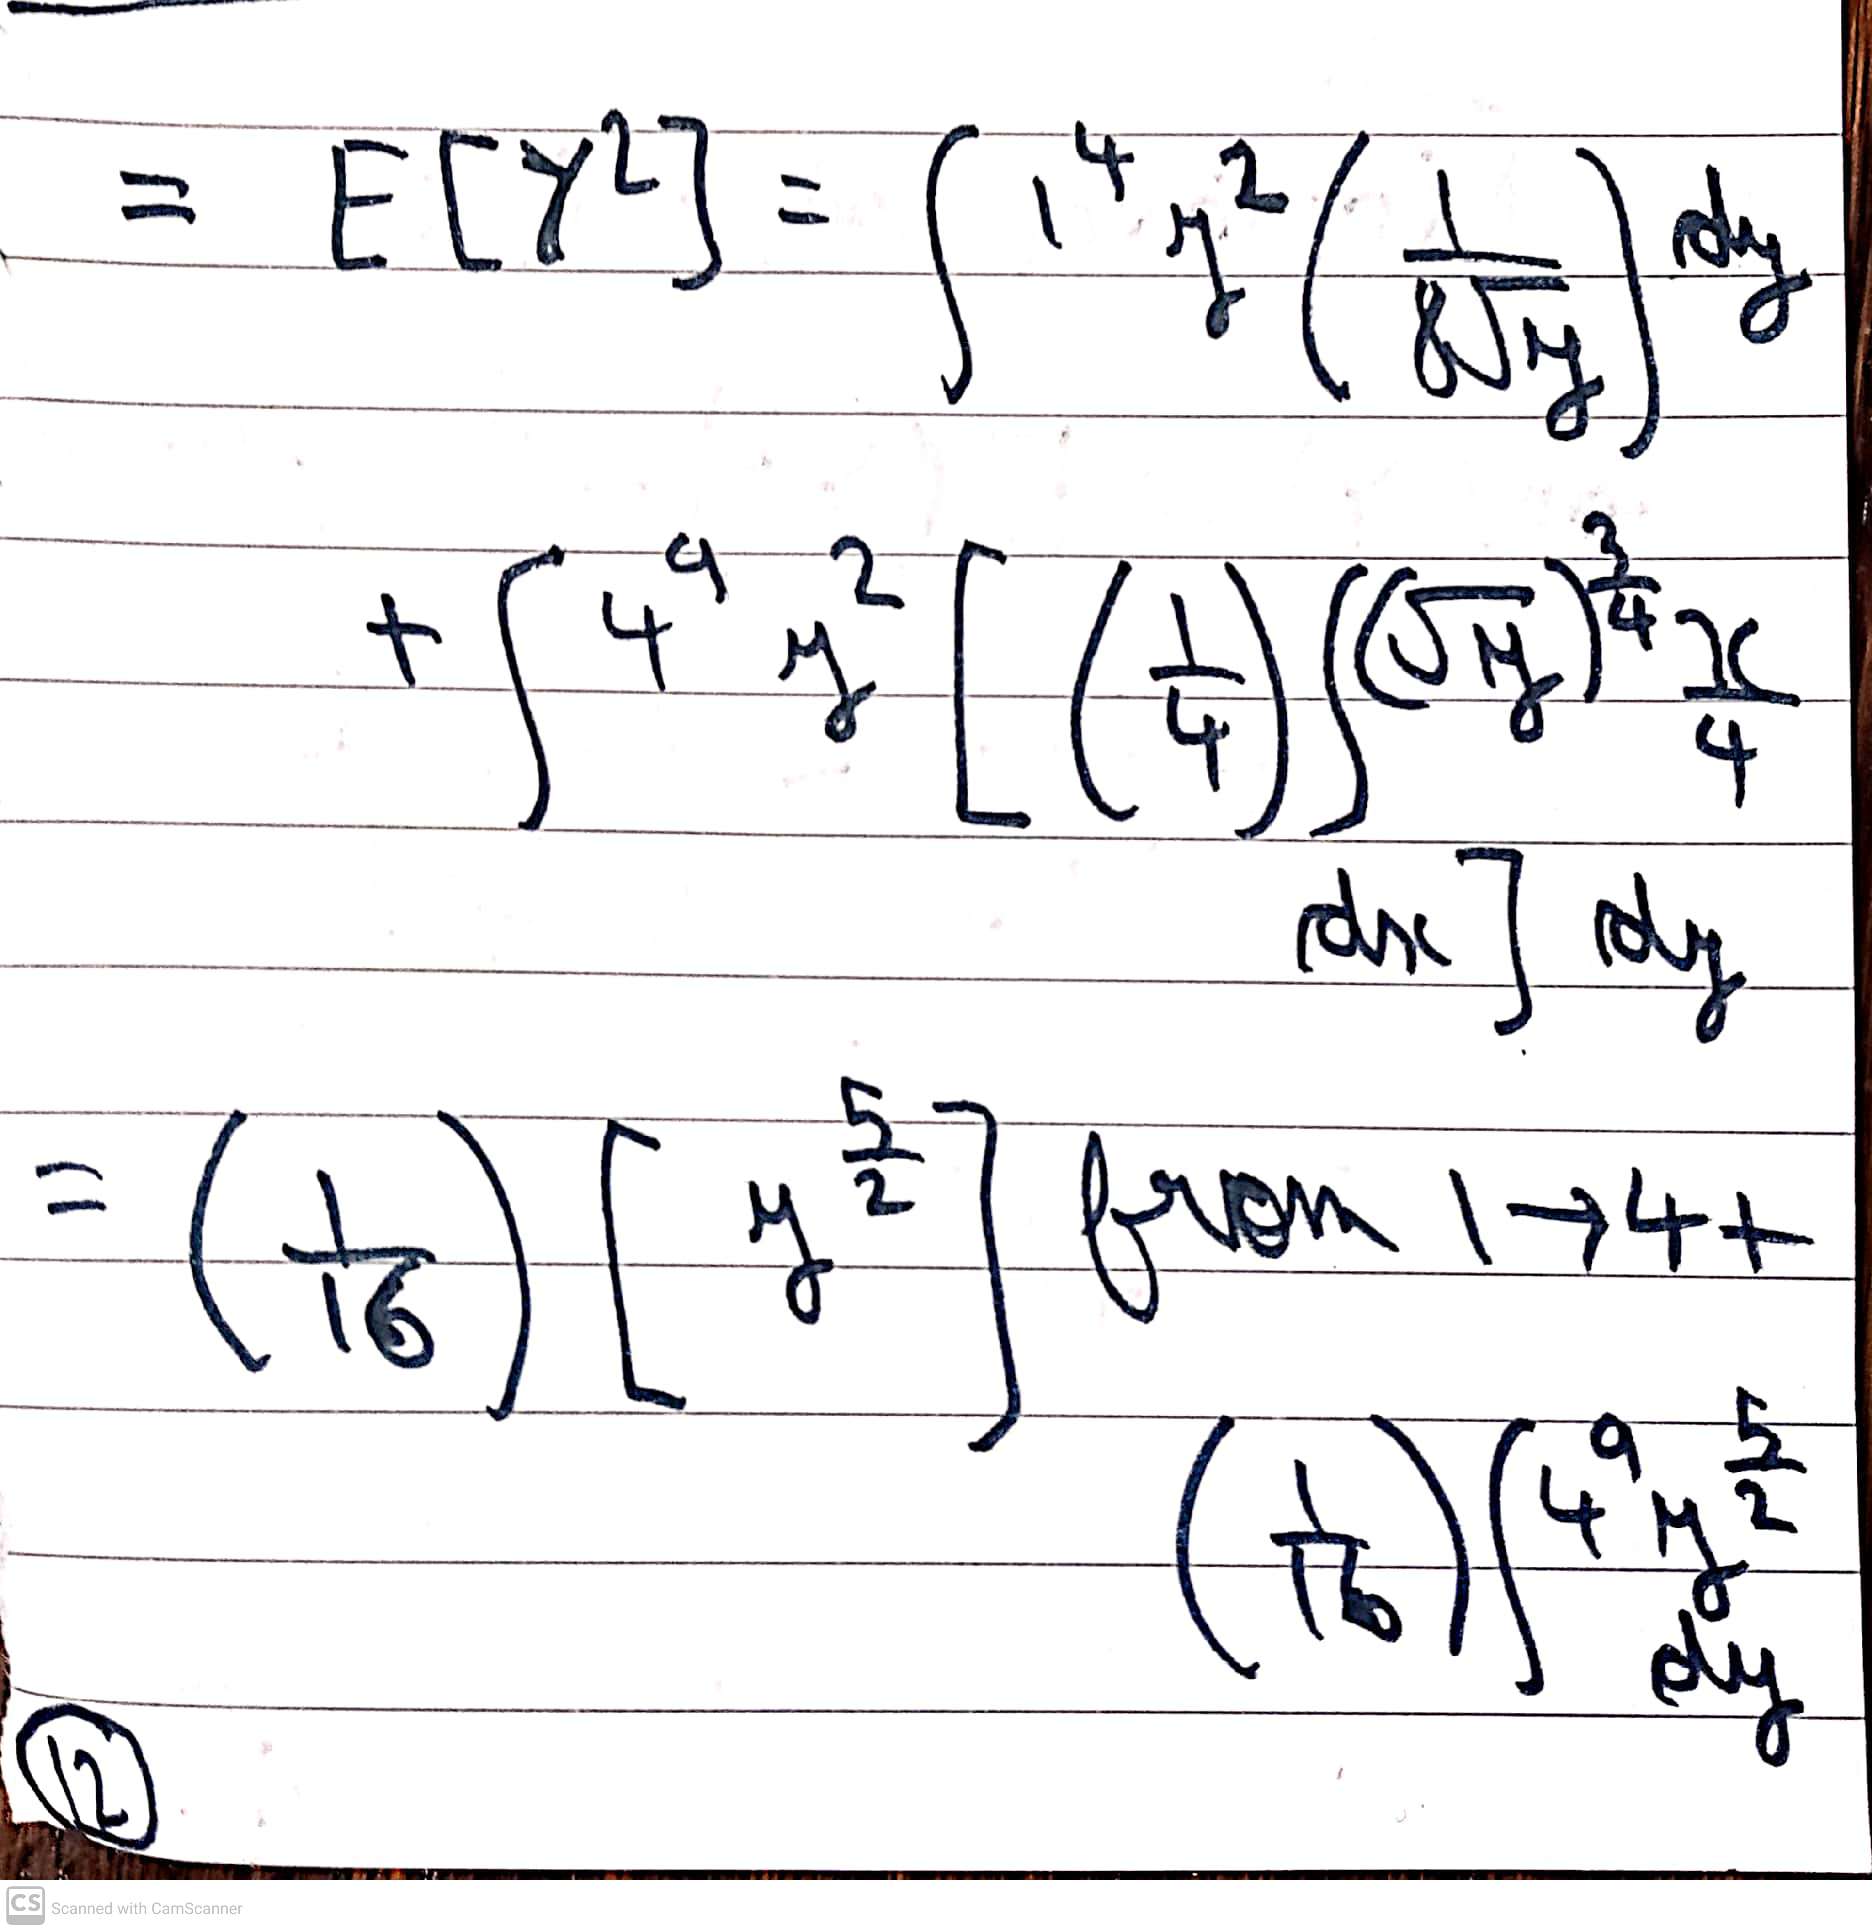 = E[Y²] = ∫ 1⁴ y² (1/(8√y)) dy
+ ∫ 4⁹ y² [(1/4) ∫ (√y)^(3/4) x/4
dx] dy
= (1/16) [y^(5/2)] from 1→4 +
(1/16) ∫ 4⁹ y^(5/2)
dy
12
CS Scanned with CamScanner